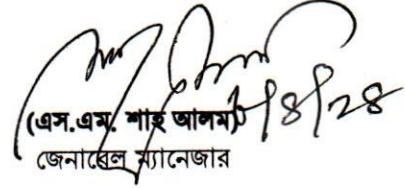 (এস.এম. শাহ আলম)
জেনারেল ম্যানেজার